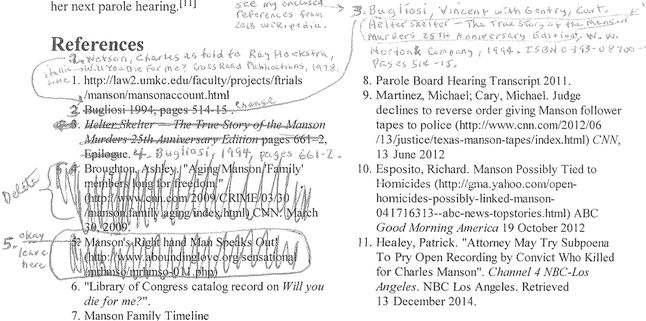 her next parole hearing.[11]
see my enclosed
references from
2013 wikipedia.
References
2. Watson, Charles as told to Ray Hoekstra,
Will You Die For Me? Cross Read Publications, 1978.
italic
title
1. http://law2.umkc.edu/faculty/projects/ftrials
/manson/mansonaccount.html
2. Bugliosi 1994, pages 514-15.
change
3. Helter Skelter — The True Story of the Manson
Murders 25th Anniversary Edition pages 661–2,
Epilogue. 4. Bugliosi, 1994, pages 661-2.
Delete
4. Broughton, Ashley. "Aging Manson 'Family'
members long for freedom."
(http://www.cnn.com/2009/CRIME/03/30
/manson.family.aging/index.html) CNN. March
30, 2009.
5. okay
leave
here
5. Manson's Right hand Man Speaks Out!
(http://www.aboundinglove.org/sensational
6. "Library of Congress catalog record on Will you
die for me?".
7. Manson Family Timeline
3. Bugliosi, Vincent with Gentry, Curt.
Helter Skelter — The True Story of the Manson
Murders 25th Anniversary Edition, W. W.
Norton & Company, 1994. ISBN 0-393-08700-
Pages 514-15.
8. Parole Board Hearing Transcript 2011.
9. Martinez, Michael; Cary, Michael. Judge
declines to reverse order giving Manson follower
tapes to police (http://www.cnn.com/2012/06
/13/justice/texas-manson-tapes/index.html) CNN,
13 June 2012
10. Esposito, Richard. Manson Possibly Tied to
Homicides (http://gma.yahoo.com/open-
homicides-possibly-linked-manson-
041716313--abc-news-topstories.html) ABC
Good Morning America 19 October 2012
11. Healey, Patrick. "Attorney May Try Subpoena
To Pry Open Recording by Convict Who Killed
for Charles Manson". Channel 4 NBC-Los
Angeles. NBC Los Angeles. Retrieved
13 December 2014.